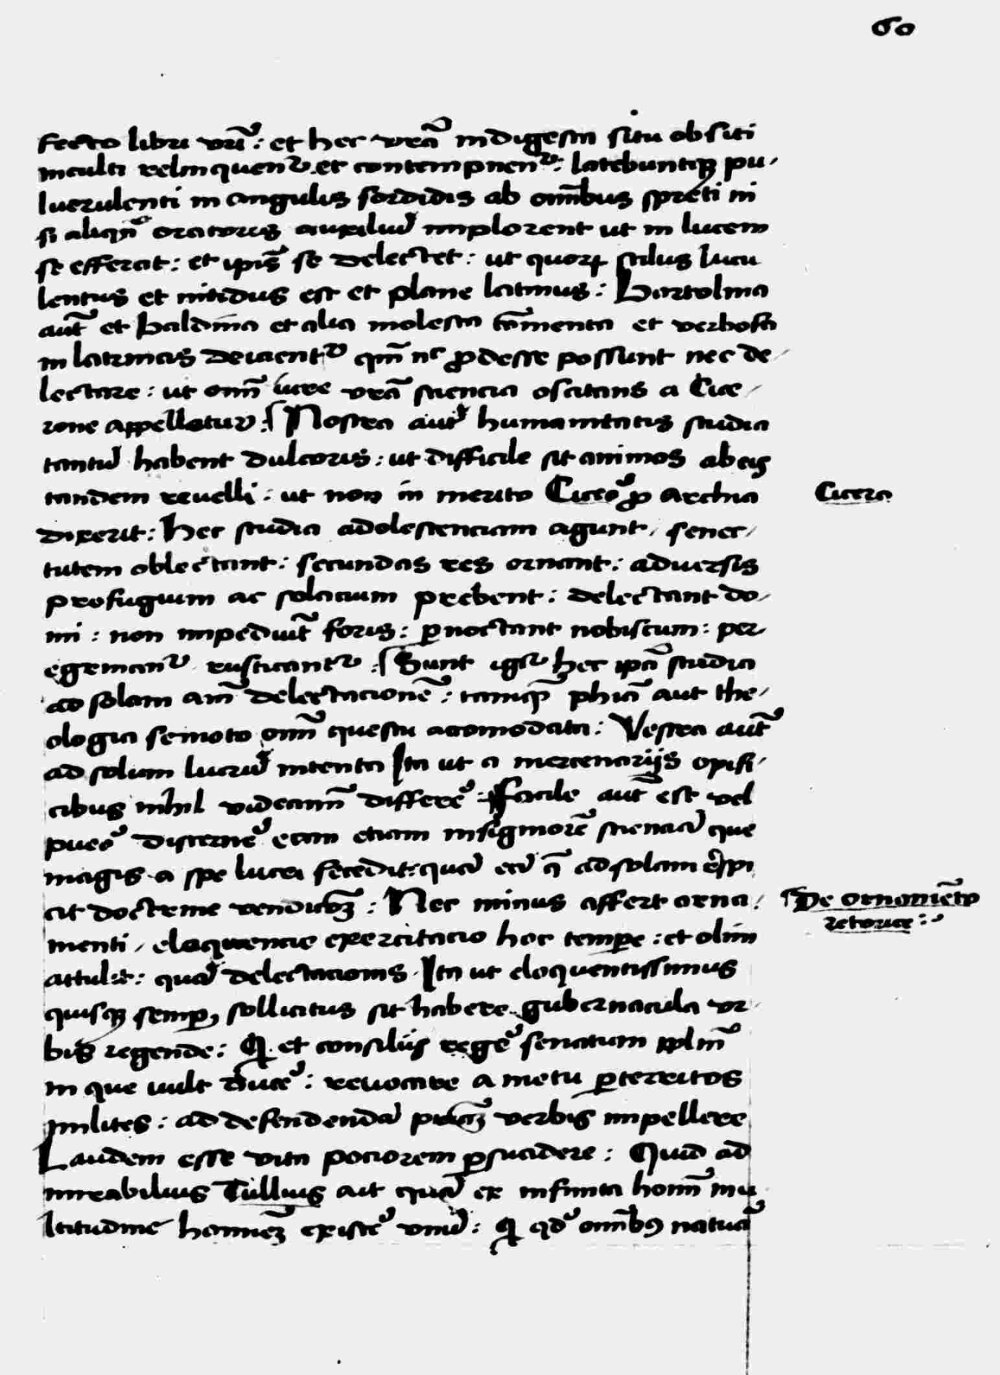 60
fecto libri vr̄i : et hec vrā indigesta situ obsiti
inculti relinquent᷑ et contempnent᷑ : latebuntqꝫ pu-
luerulenti in angulis sordidis ab om̄ibus spreti ni
si aliqn̄ oratoris auxiliū implorent ut in lucem
se efferat : et ip̄is se delectet : ut quoꝝ stilus lucu
lentus et nitidus est et plane latinus : Bartolina
aut̄ et Baldina et alia molesta com̄enta et verbosa
in latrinas deicient᷑ qm̄ nc̄ ꝓdesse possunt nec de-
lectare : ut om̄i iure vrā sciencia oscitans a Cice-
rone appelletur : Nostra aut̄ humanitatis studia
tantū habent dulcoris : ut difficile sit animos ab eis
tandem reuelli : ut non in merito Cicero ꝓ Archia
Cicero
dixerit : hec studia adolescenciam agunt, senec-
tutem oblectant : secundas res ornant : aduersis
profugium ac solacium prebent : delectant do-
mi : non impediūt foris : ꝑnoctant nobiscum : per-
egrinant᷑ rusticant᷑ : Sunt igr̄ hec ip̄a studia
ad solam aīm delectacionē : tamqꝫ ph̄ia aut the-
ologia semoto om̄i questu acomodata : Vestra aut̄
ad solum lucrū intenta Ita ut a mercenarijs opifi-
cibus nihil videant᷑ differre : Facile aut̄ est vel
puero discernere eam etiam insigniorē scienciā que
magis a spe lucri secedit : quā eā q̄ ad solam
cit doctrine : Nec minus affert orna-
De ornamēto
retorice :
menti, eloquencie exercitacio hoc tempore : et olim
attulit : quā delectacionis . Ita ut eloquentissimus
quisqꝫ semꝑ sollicitus sit habere gubernacula vr-
bis regende : Qꝫ et consilijs regere senatum pplm̄
in que vult ducere : reuocare a metu ꝑterritos
milites : ad defendendā verbis impellere
Laudem esse vita pociorem ꝑsuadere : Quid ad
mirabilius Tullius ait quā ex infinita hoīm mu
ltitudine existere vnū : Qꝫ qd̄ om̄ibꝰ natura